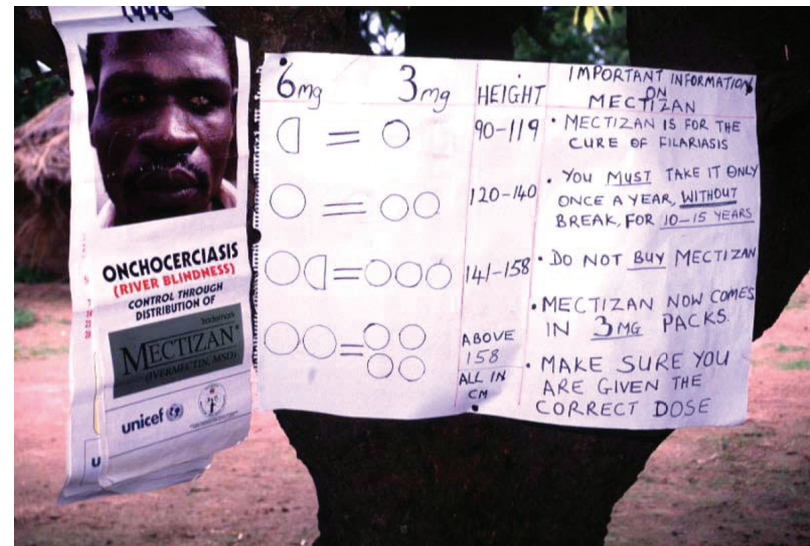 1998
ONCHOCERCIASIS
(RIVER BLINDNESS)
CONTROL THROUGH
DISTRIBUTION OF
trademark
MECTIZAN®
(IVERMECTIN, MSD)
unicef
U
6mg 3mg HEIGHT
= 90-119
= 120-140
= 141-158
= ABOVE
158
ALL IN
CM
IMPORTANT INFORMATION
ON
MECTIZAN
• MECTIZAN IS FOR THE
CURE OF FILARIASIS
• YOU MUST TAKE IT ONLY
ONCE A YEAR, WITHOUT
BREAK, FOR 10-15 YEARS
• DO NOT BUY MECTIZAN
• MECTIZAN NOW COMES
IN 3MG PACKS.
• MAKE SURE YOU
ARE GIVEN THE
CORRECT DOSE